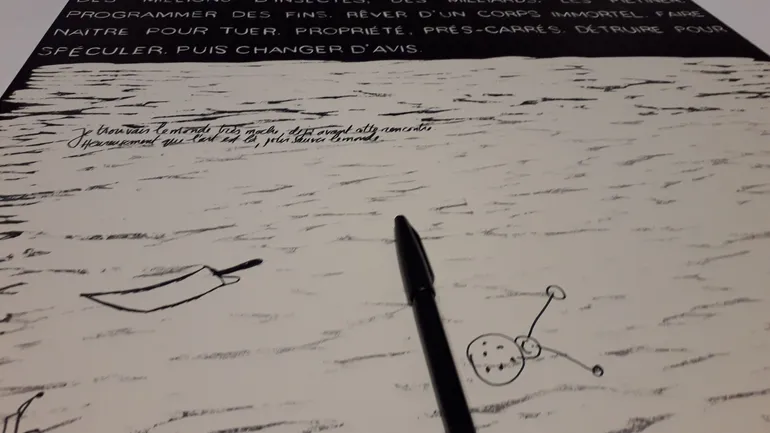 DES MILLIONS D'INSECTES, DES MILLIARDS. LES PIÉTINER.
PROGRAMMER DES FINS. RÊVER D'UN CORPS IMMORTEL. FAIRE
NAITRE POUR TUER. PROPRIÉTÉ, PRÉS-CARRÉS. DÉTRUIRE POUR
SPÉCULER. PUIS CHANGER D'AVIS.
Je trouvais le monde très moche, déjà avant cette rencontre
Heureusement que l'art est là, pour sauver le monde.